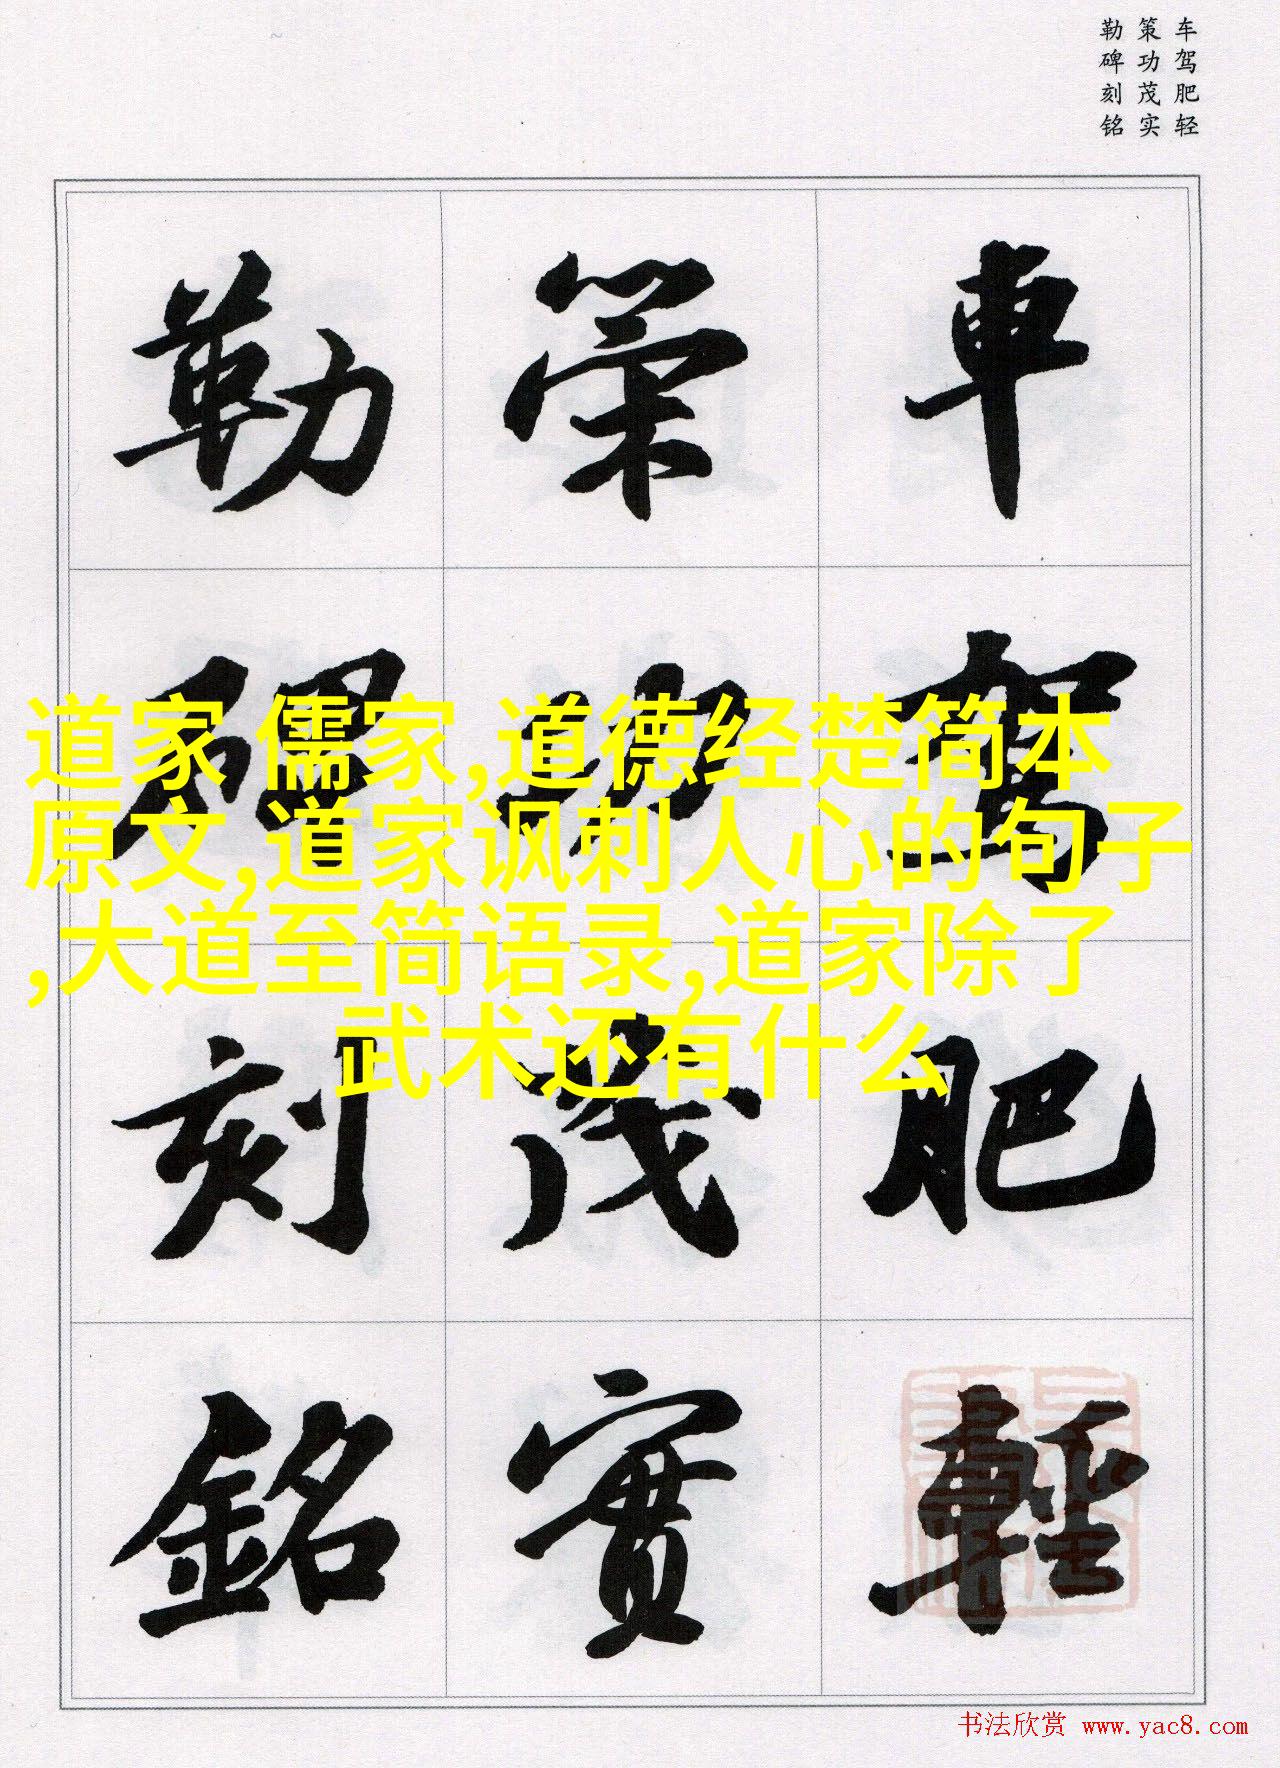 车驾肥轻
策功茂实
勒碑刻铭
車駕肥輕
策功茂實
勒碑刻銘
道家 儒家,道德经楚简本
原文,道家讽刺人心的句子
,大道至简语录,道家除了
武术还有什么
书法欣赏 www.yac8.com